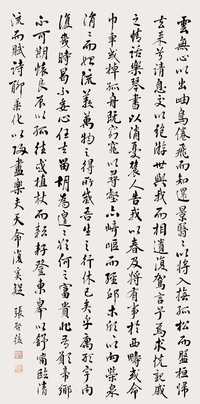 雲無心以出岫鳥倦飛而知還景翳翳以將入撫孤松而盤桓歸
去來兮請息交以絕游世與我而相遺復駕言兮焉求悅親戚
之情話樂琴書以消憂農人告余以春及將有事於西疇或命
巾車或棹孤舟既窈窕以尋壑亦崎嶇而經邱木欣欣以向榮泉
涓涓而始流羨萬物之得時感吾生之行休已矣乎寓形宇內
復幾時曷不委心任去留胡為遑遑欲何之富貴非吾願帝鄉
不可期懷良辰以孤往或植杖而耘耔登東皋以舒嘯臨清
流而賦詩聊乘化以歸盡樂夫天命復奚疑 張啓後